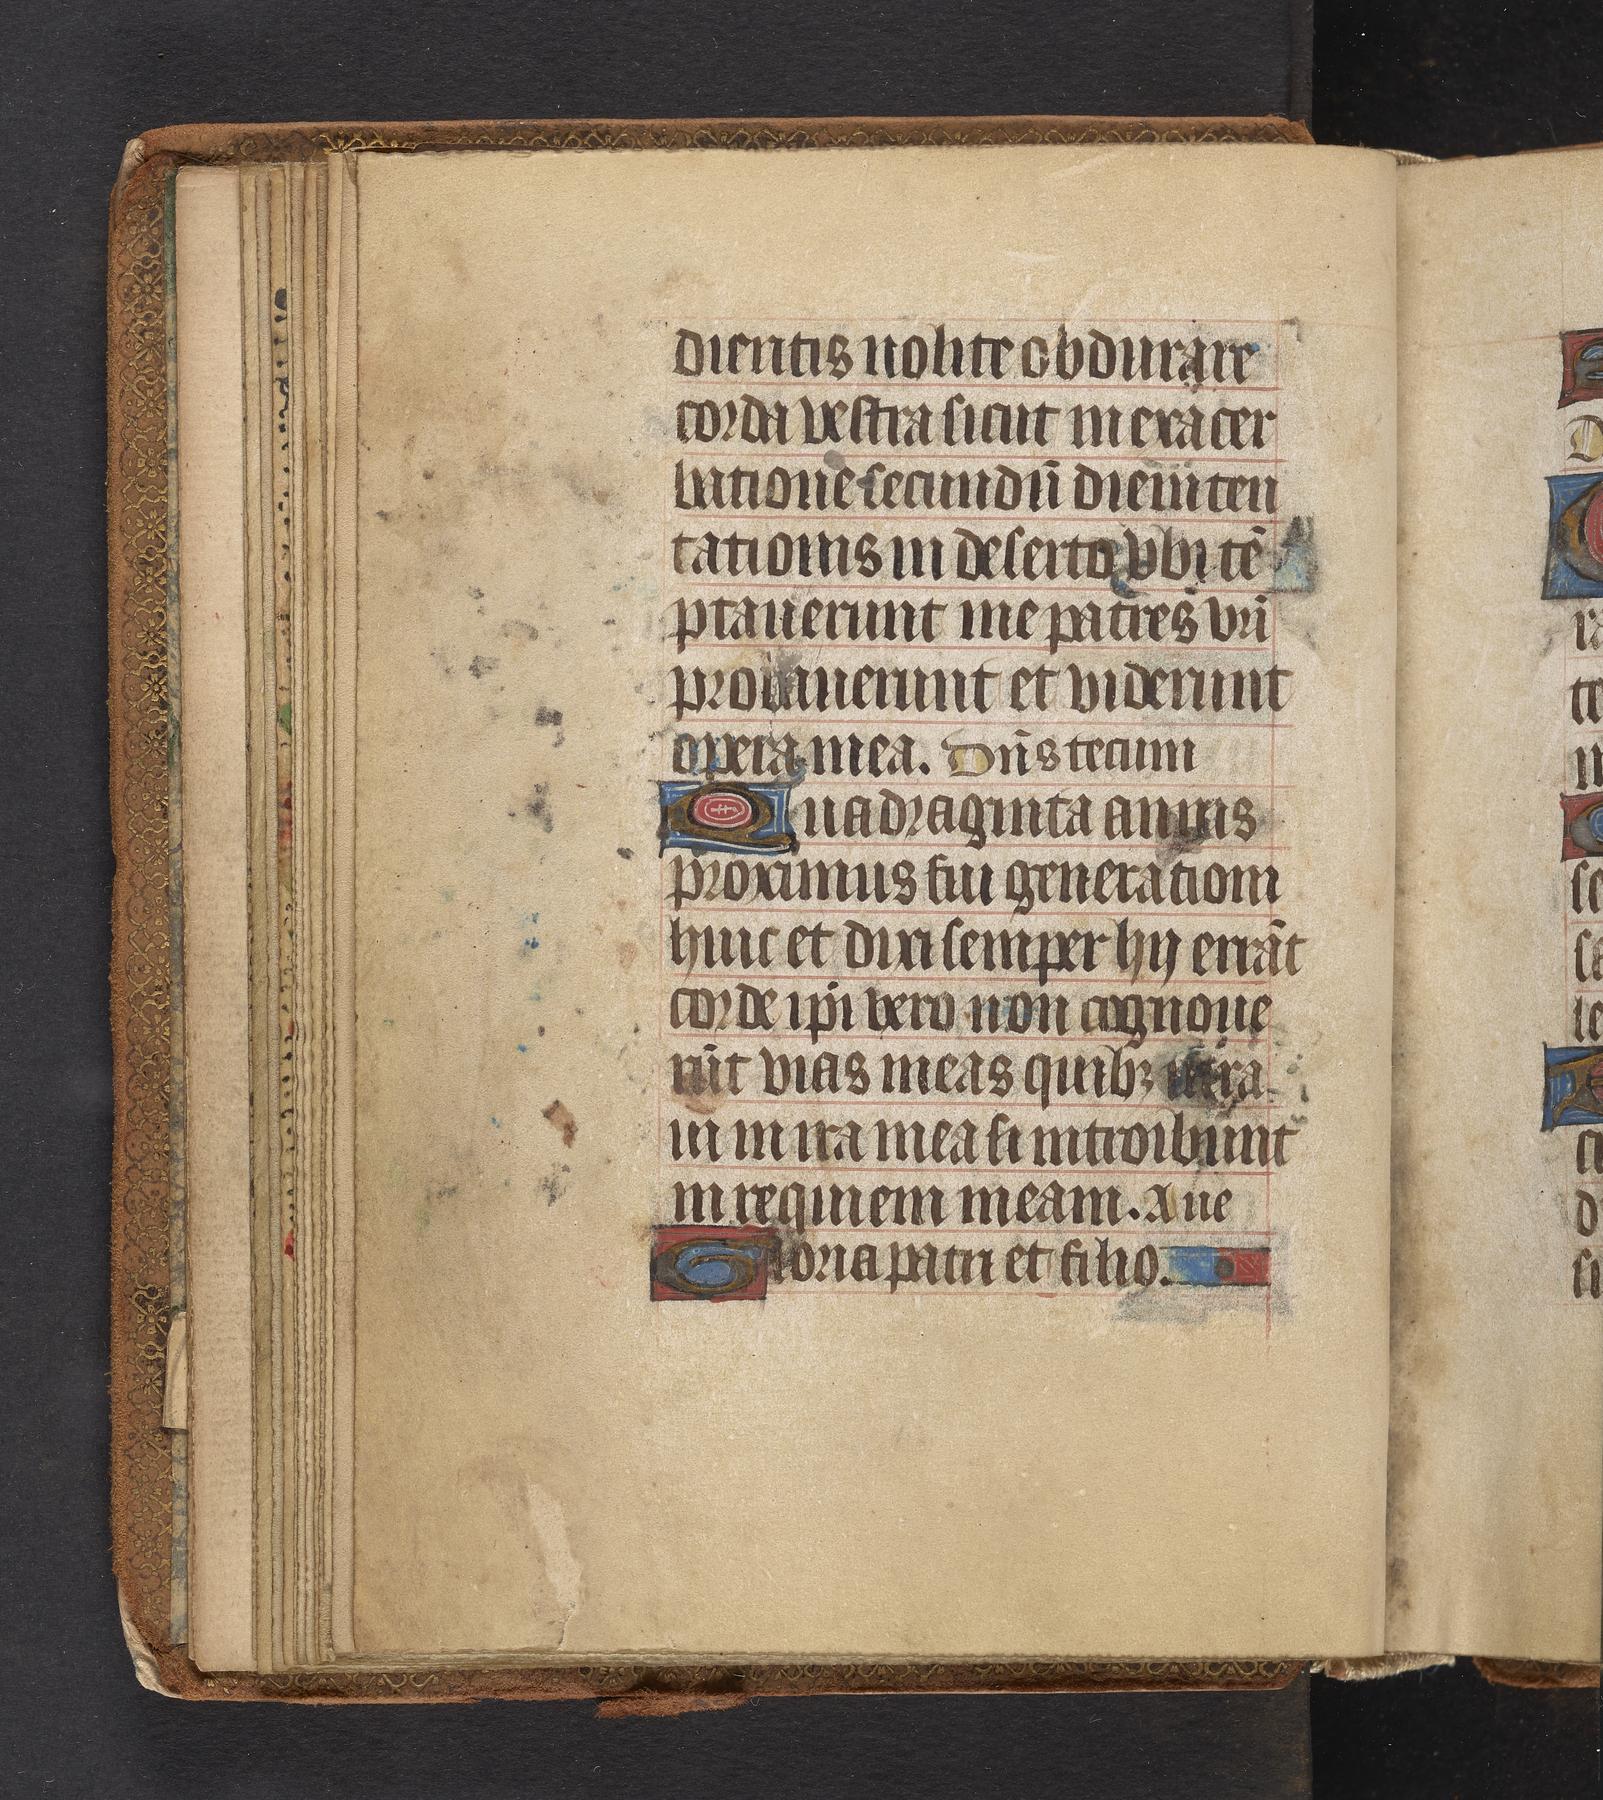 dientis nolite obdurare
corda vestra sicut in exacer
batione secundū diem ten
tationis in deserto vbi tē
ptauerunt me patres vr̄i
probauerunt et viderunt
opera mea. Dn̄s tecum
Quadraginta annis
proximus fui generationi
huic et dixi semper hij errāt
corde ip̄i vero non cognoue
rūt vias meas quibꝫ iura
ui in ira mea si introibunt
in requiem meam. Aue
Gloria patri et filio.